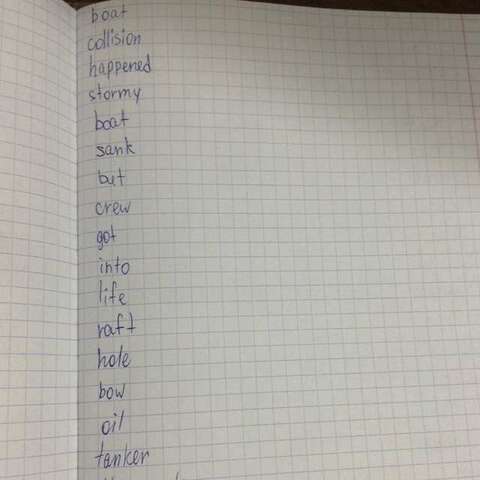 boat
collision
happened
stormy
boat
sank
but
crew
got
into
life
raft
hole
bow
oil
tanker